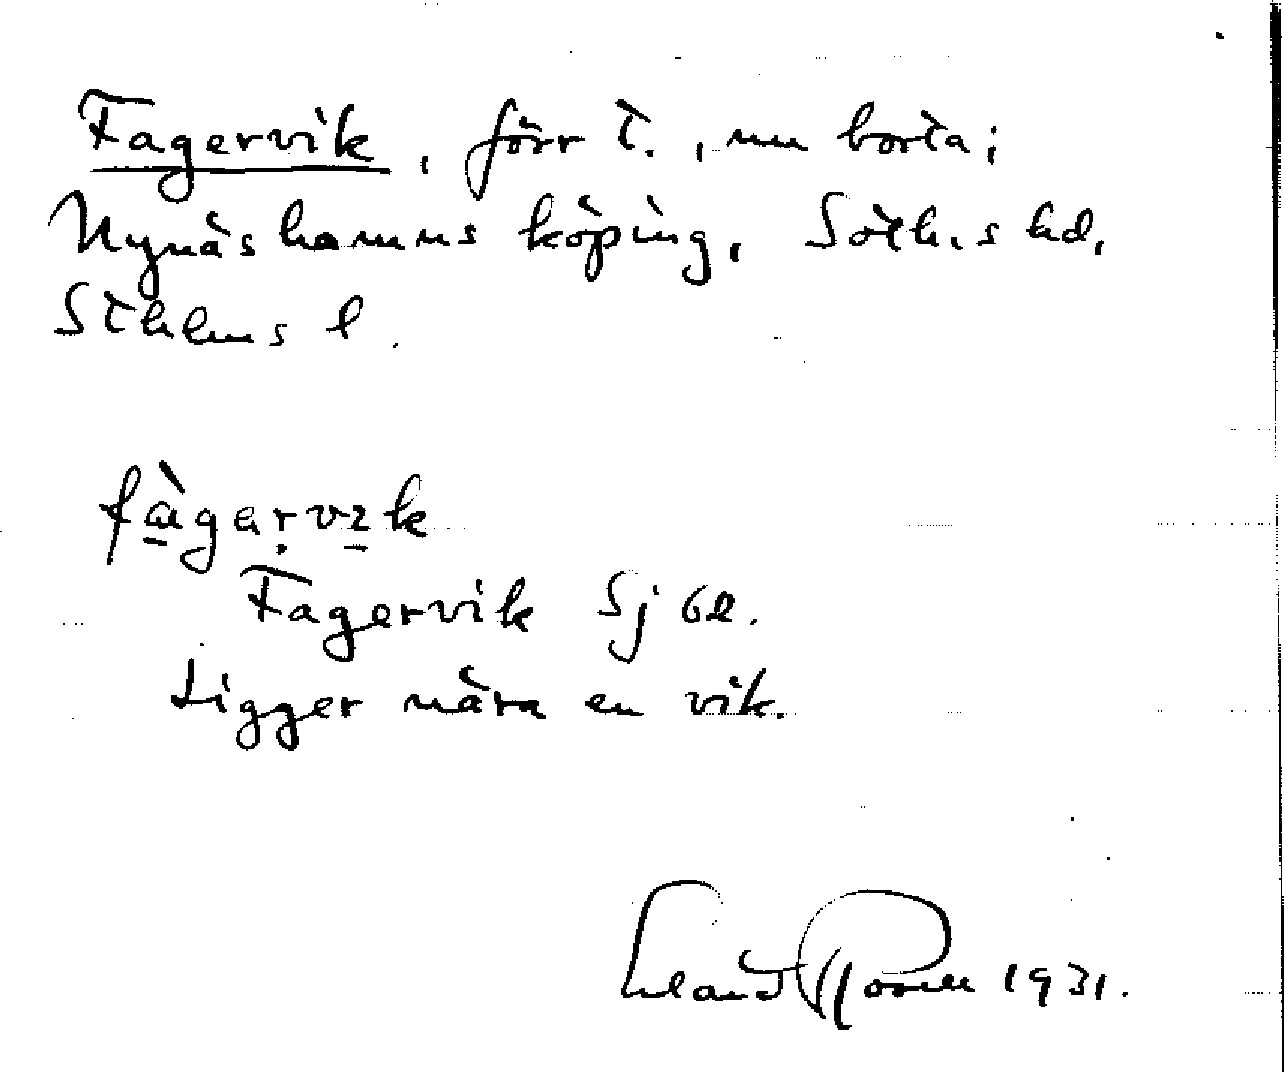 Fagervik, förr t., nu borta;
Nynäshamns köping, Soth.s hd,
Sthlms l.
fàgarvik
Fagervik Sj 62.
Ligger nära en vik.
Erland Rosell 1931.